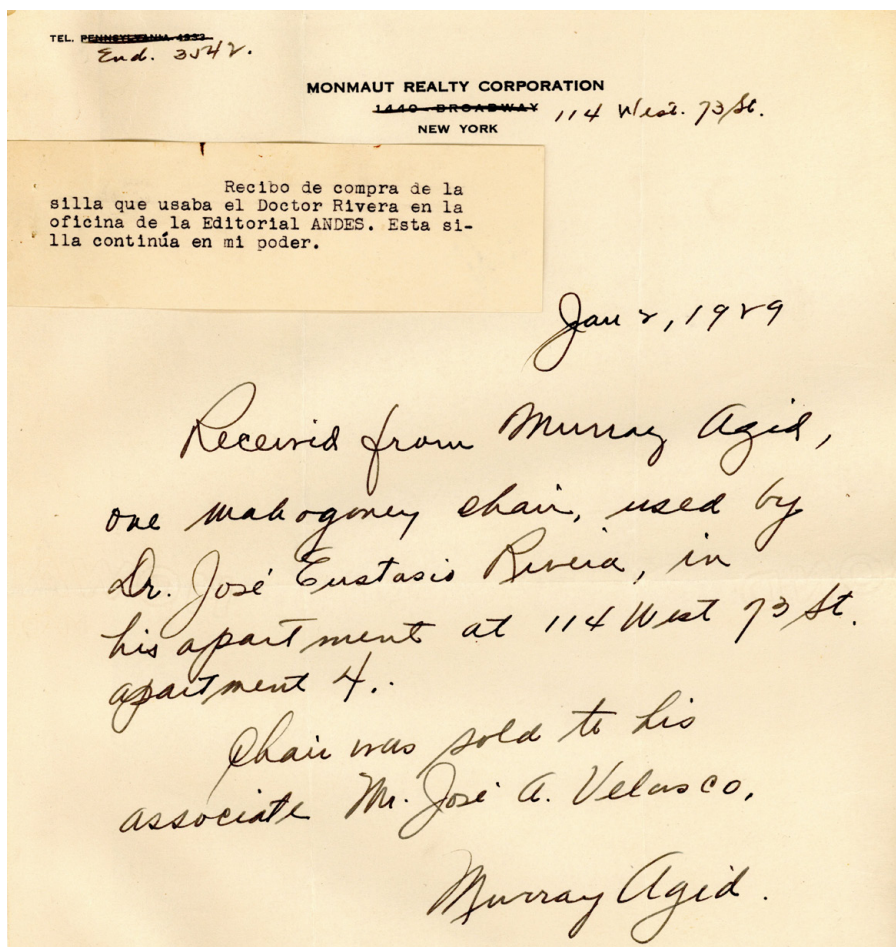 TEL. PENNSYLVANIA 4933
End. 3542.
MONMAUT REALTY CORPORATION
1440 BROADWAY 114 West. 73 St.
NEW YORK
Recibo de compra de la
silla que usaba el Doctor Rivera en la
oficina de la Editorial ANDES. Esta si-
lla continúa en mi poder.
Jan 2, 1929
Received from Murray Agid,
one mahogoney chair, used by
Dr. José Eustasio Rivera, in
his apartment at 114 West 73 St.
apartment 4..
Chair was sold to his
associate Mr. José A. Velasco.
Murray Agid.